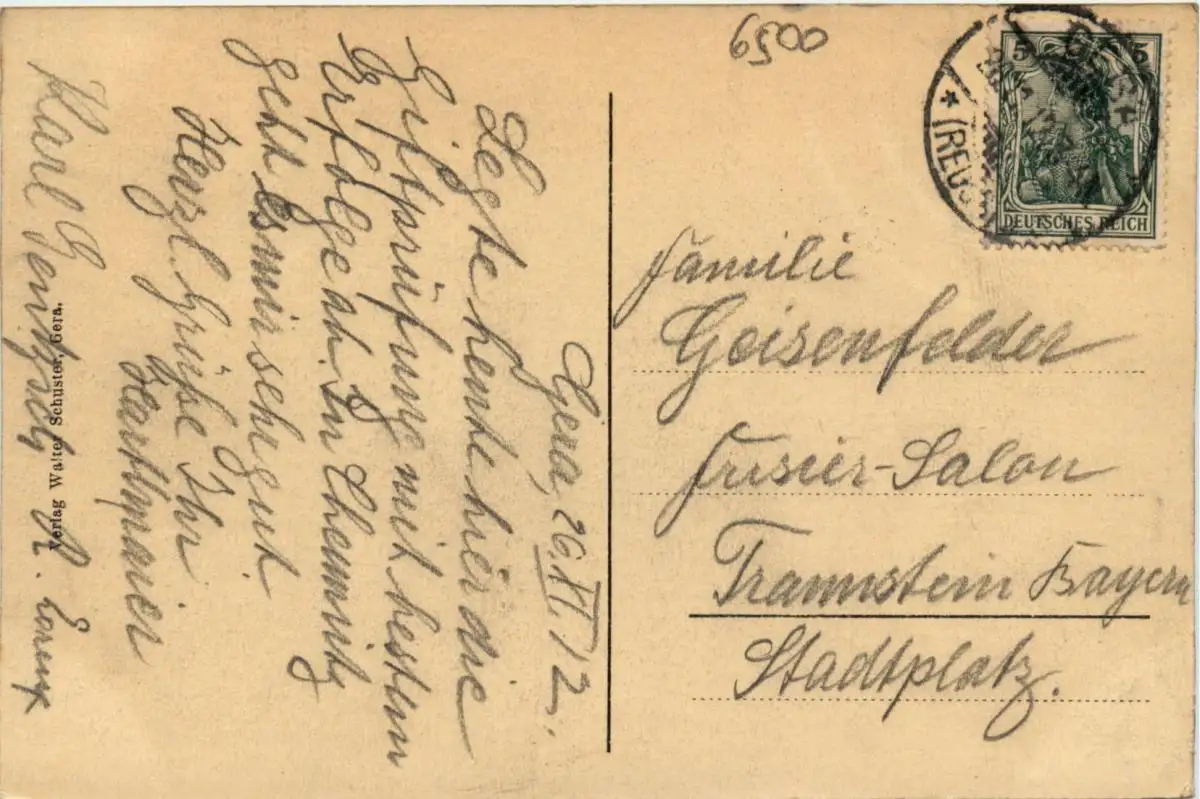 6500
5 5
DEUTSCHES REICH
GERA
* (REUSS
Gera, 26. XI. 12.
Legte heute hier die
Giftprüfung mit bestem
Erfolge ab. In Chemnitz
geht es mir sehr gut.
Herzl. Grüße Ihr
Hartmaier
Karl R. Lorenz
Verlag Walter Schuster, Gera.
Familie
Geisenfelder
Frisier-Salon
Traunstein Bayern
Stadtplatz.